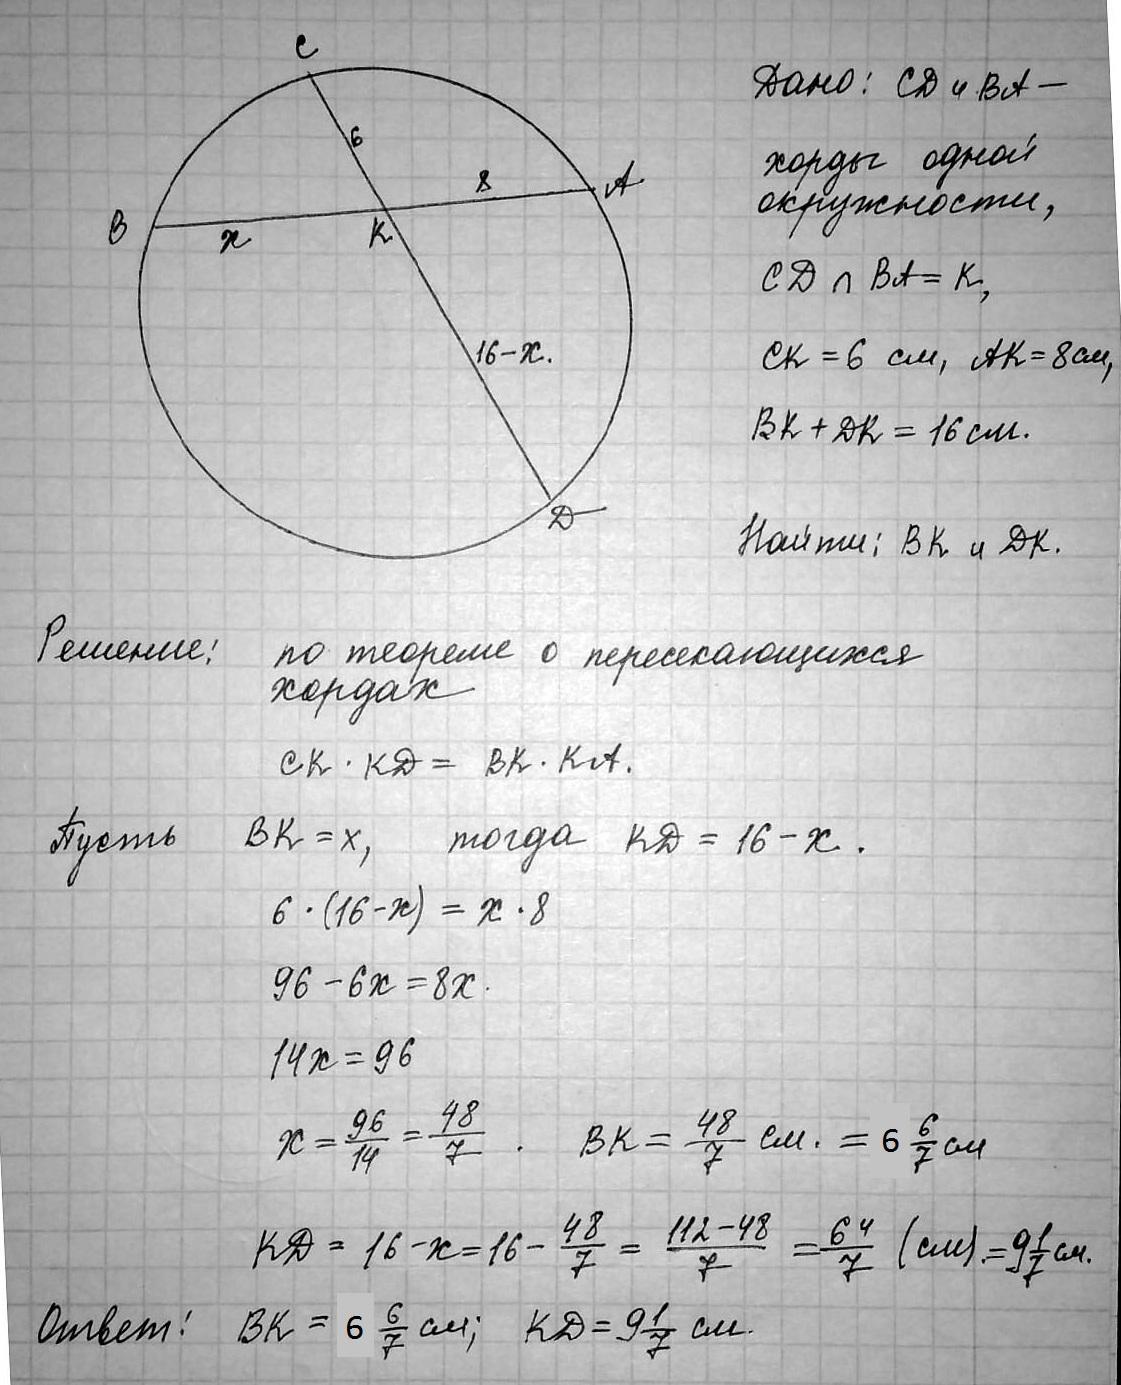 C
6
8
A
B
x
K
16-x.
D
Дано: CD и BA —
хорды одной
окружности,
CD ∩ BA = K,
CK = 6 см, AK = 8см,
BK + DK = 16 см.
Найти: BK и DK.
Решение: по теореме о пересекающихся
хордах
CK · KD = BK · KA.
Пусть BK = x, тогда KD = 16 - x.
6 · (16-x) = x · 8
96 - 6x = 8x.
14x = 96
x = 96/14 = 48/7 . BK = 48/7 см. = 6 6/7 см
KD = 16 - x = 16 - 48/7 = 112-48/7 = 64/7 (см). = 9 1/7 см.
Ответ: BK = 6 6/7 см; KD = 9 1/7 см.